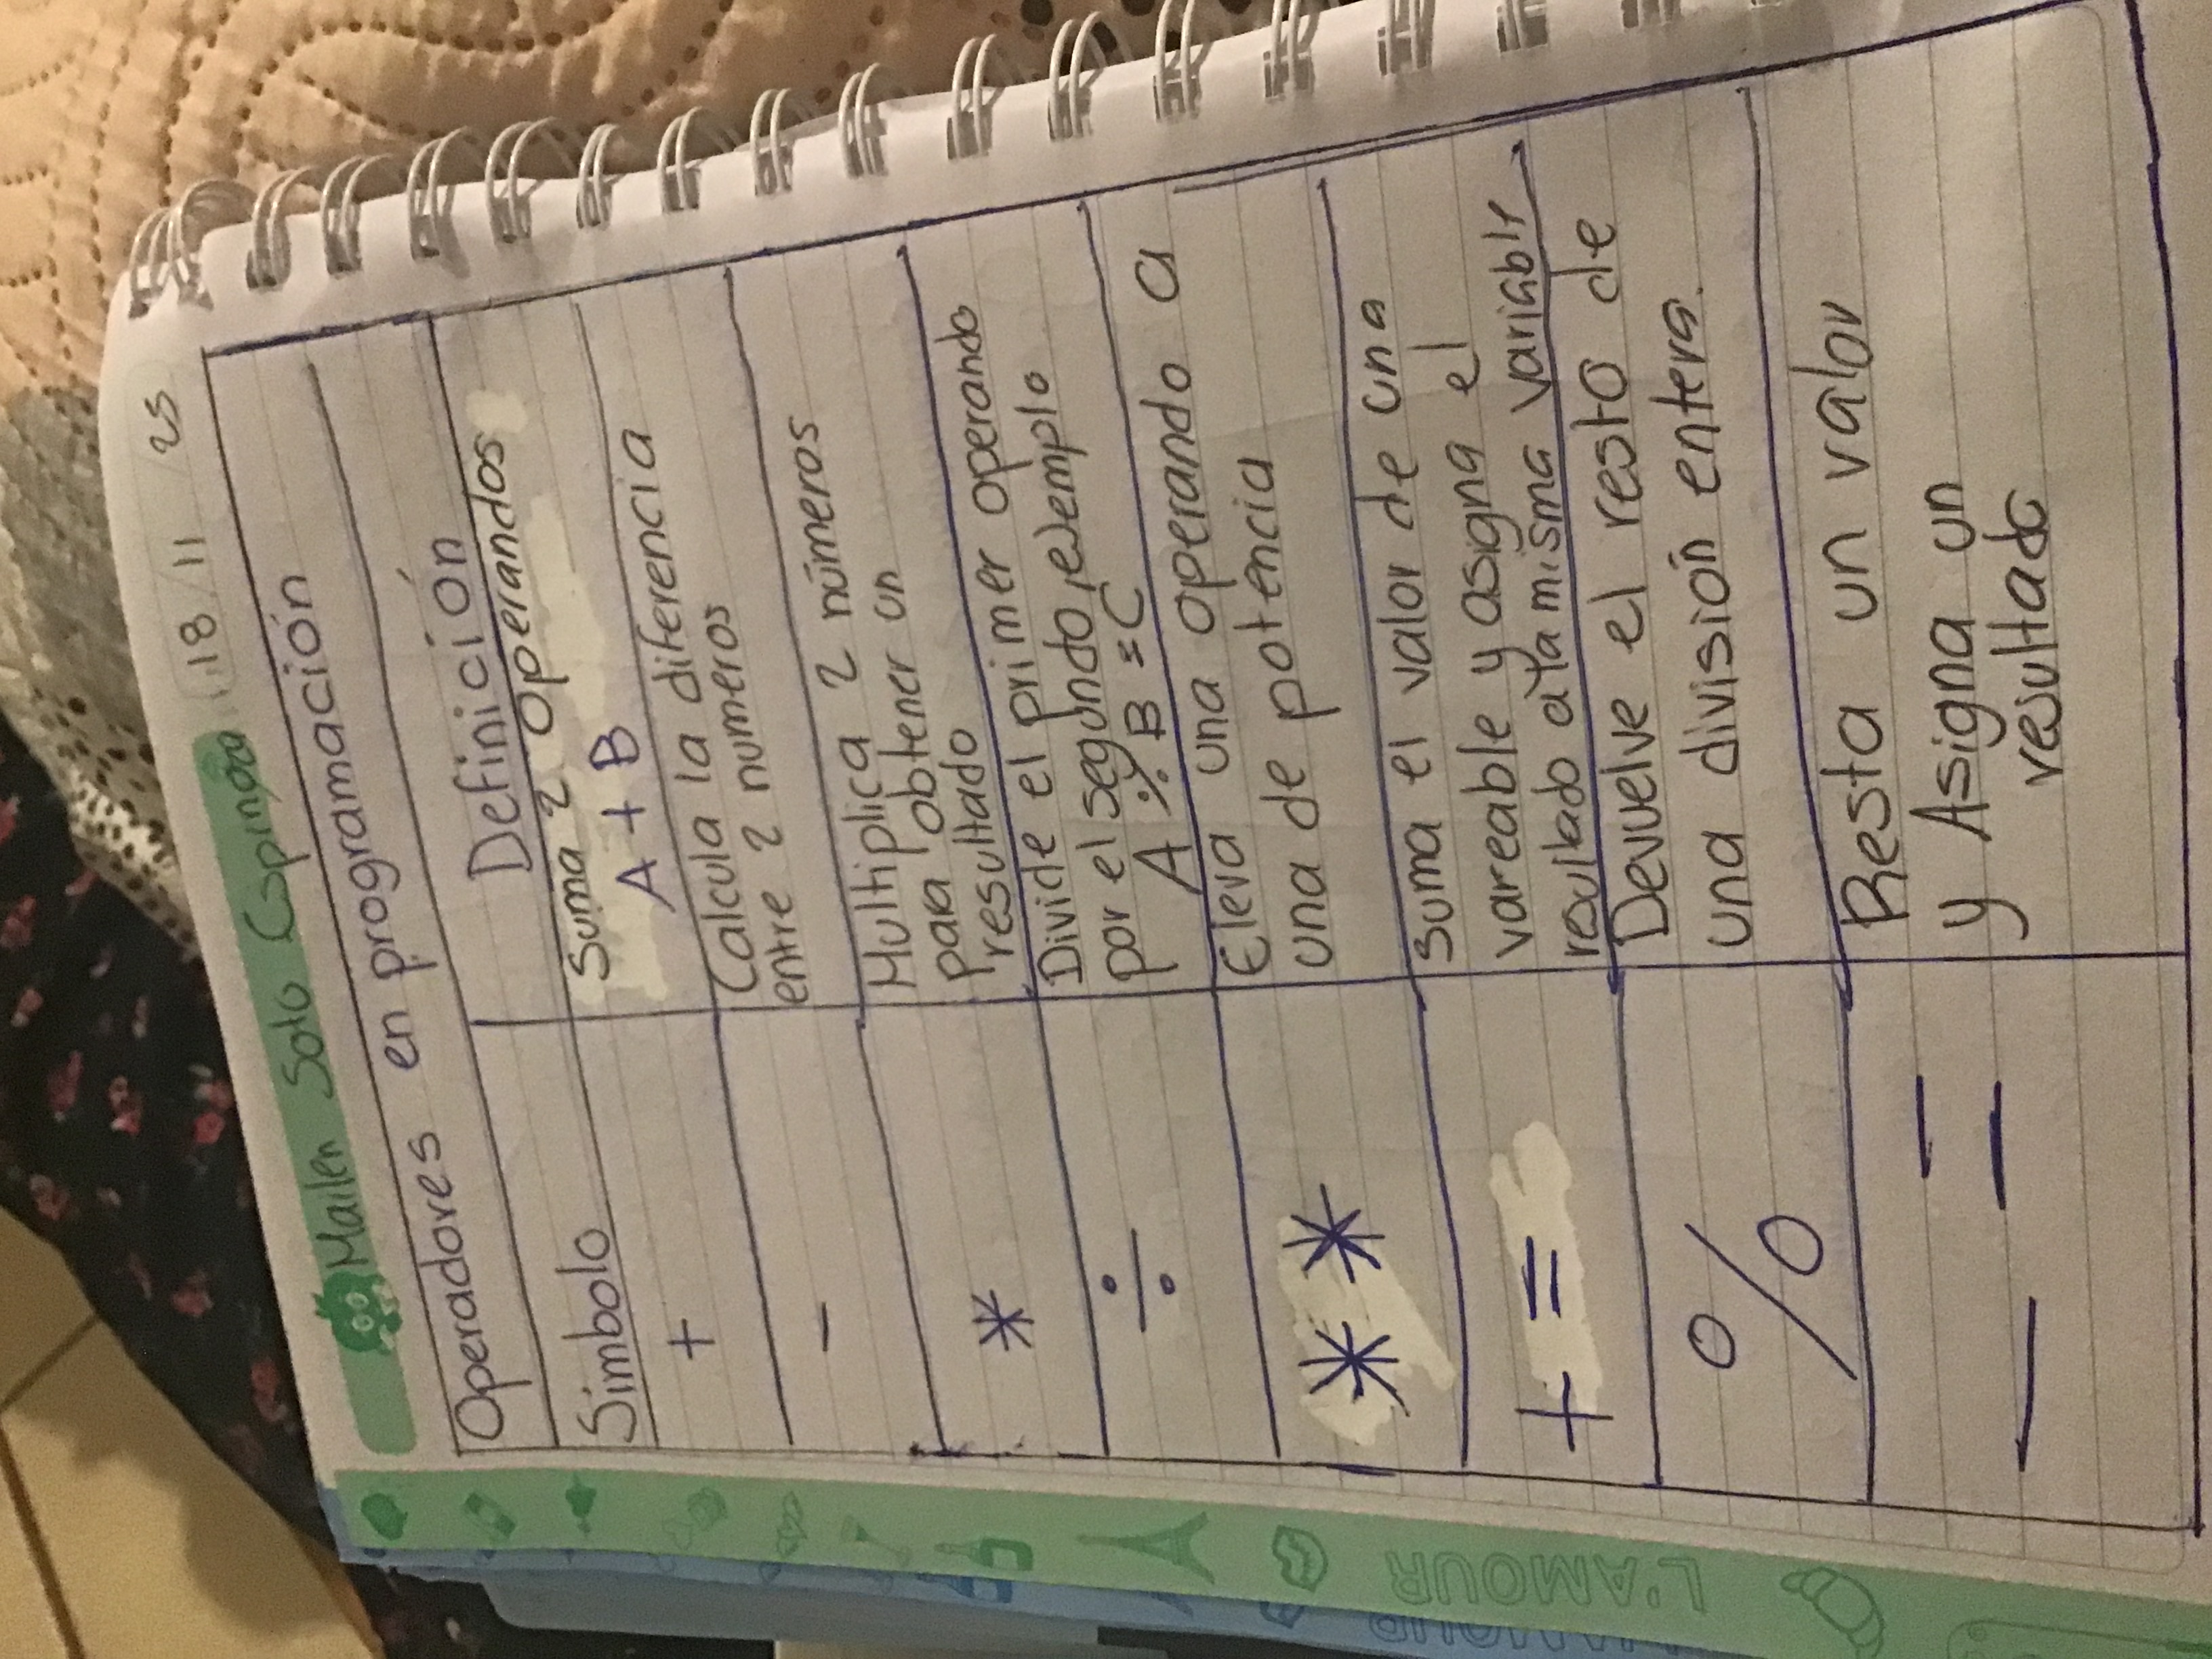 Mailen Soto Espinoza 18/11/25
Operadores en programación
Símbolo Definición
+ Suma 2 Operandos
A + B
- Calcula la diferencia
entre 2 numeros
* Multiplica 2 números
para obtener un
resultado
÷ Divide el primer operando
por el segundo, ejemplo
A ÷ B = C
** Eleva una operando a
una de potencia
+= Suma el valor de una
vareable y asigna el
resultado a la misma variable
% Devuelve el resto de
una división entera.
-= Resta un valor
y Asigna un
resultado
L'AMOUR
L'AMOUR